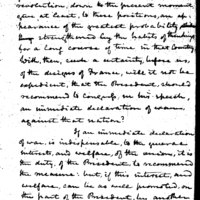 revolution, down to the present moment,
give at least, to those positions, an ap-
pearance of the greatest probability,
strengthened by the habits of thinking
for a long course of time in that Country.
With, then, such a certainty, before us,
of the designs of France, will it not be
expedient, that the President, should
recommend to Congress, in his speech,
an immediate declaration of war
against that nation?
If an immediate declaration
of war, is indispensable, to the general
interests, and welfare, of the union, it is
the duty, of the President, to recommend
the measure: but, if this interest, and
welfare, can be as well promoted, on
the part of the President, by another